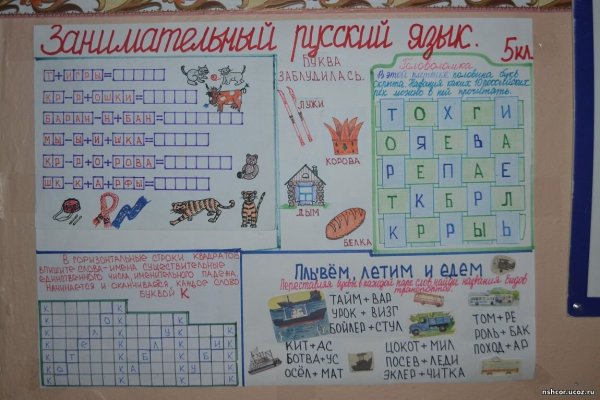 Занимательный русский язык. 5кл
Т+ИГРЫ=
КР-Р+ОШКИ=
БАРАН-Н+БАН=
МЫ-Ы+И+ШКА=
КР-Р+О+РОВА=
ШК-К+А+РФЫ=
БУКВА
ЗАБЛУДИЛАСЬ.
ЛУЖИ
КОРОВА
ДЫМ
БЕЛКА
Головоломка.
В этой плитке половина букв
скрыта. Названия каких 8 российских
рек можно в ней прочитать.
Т О Х Г И
О Я Е В А
Р Е П А Е
Т К Б Р Л
К Р Р Ы Ь
В ГОРИЗОНТАЛЬНЫЕ СТРОКИ КВАДРАТОВ
ВПИШИТЕ СЛОВА-ИМЕНА СУЩЕСТВИТЕЛЬНЫЕ
ЕДИНСТВЕННОГО ЧИСЛА, ИМЕНИТЕЛЬНОГО ПАДЕЖА.
НАЧИНАЕТСЯ И ОКАНЧИВАЕТСЯ КАЖДОЕ СЛОВО
БУКВОЙ К
Плывём, летим и едем
Переставив буквы в каждой паре слов найди названия видов
транспорта.
ТАЙМ+ВАР
УРОК+ВИЗГ
БОЙЛЕР+СТУЛ
КИТ+АС
БОТВА+УС
ОСЁЛ+МАТ
ЦОКОТ+МИЛ
ПОСЕВ+ЛЕДИ
ЭКЛЕР+ЧИТКА
ТОМ+РЕ
РОЛЬ+БАК
ПОХОД+АР
nshcor.ucoz.ru